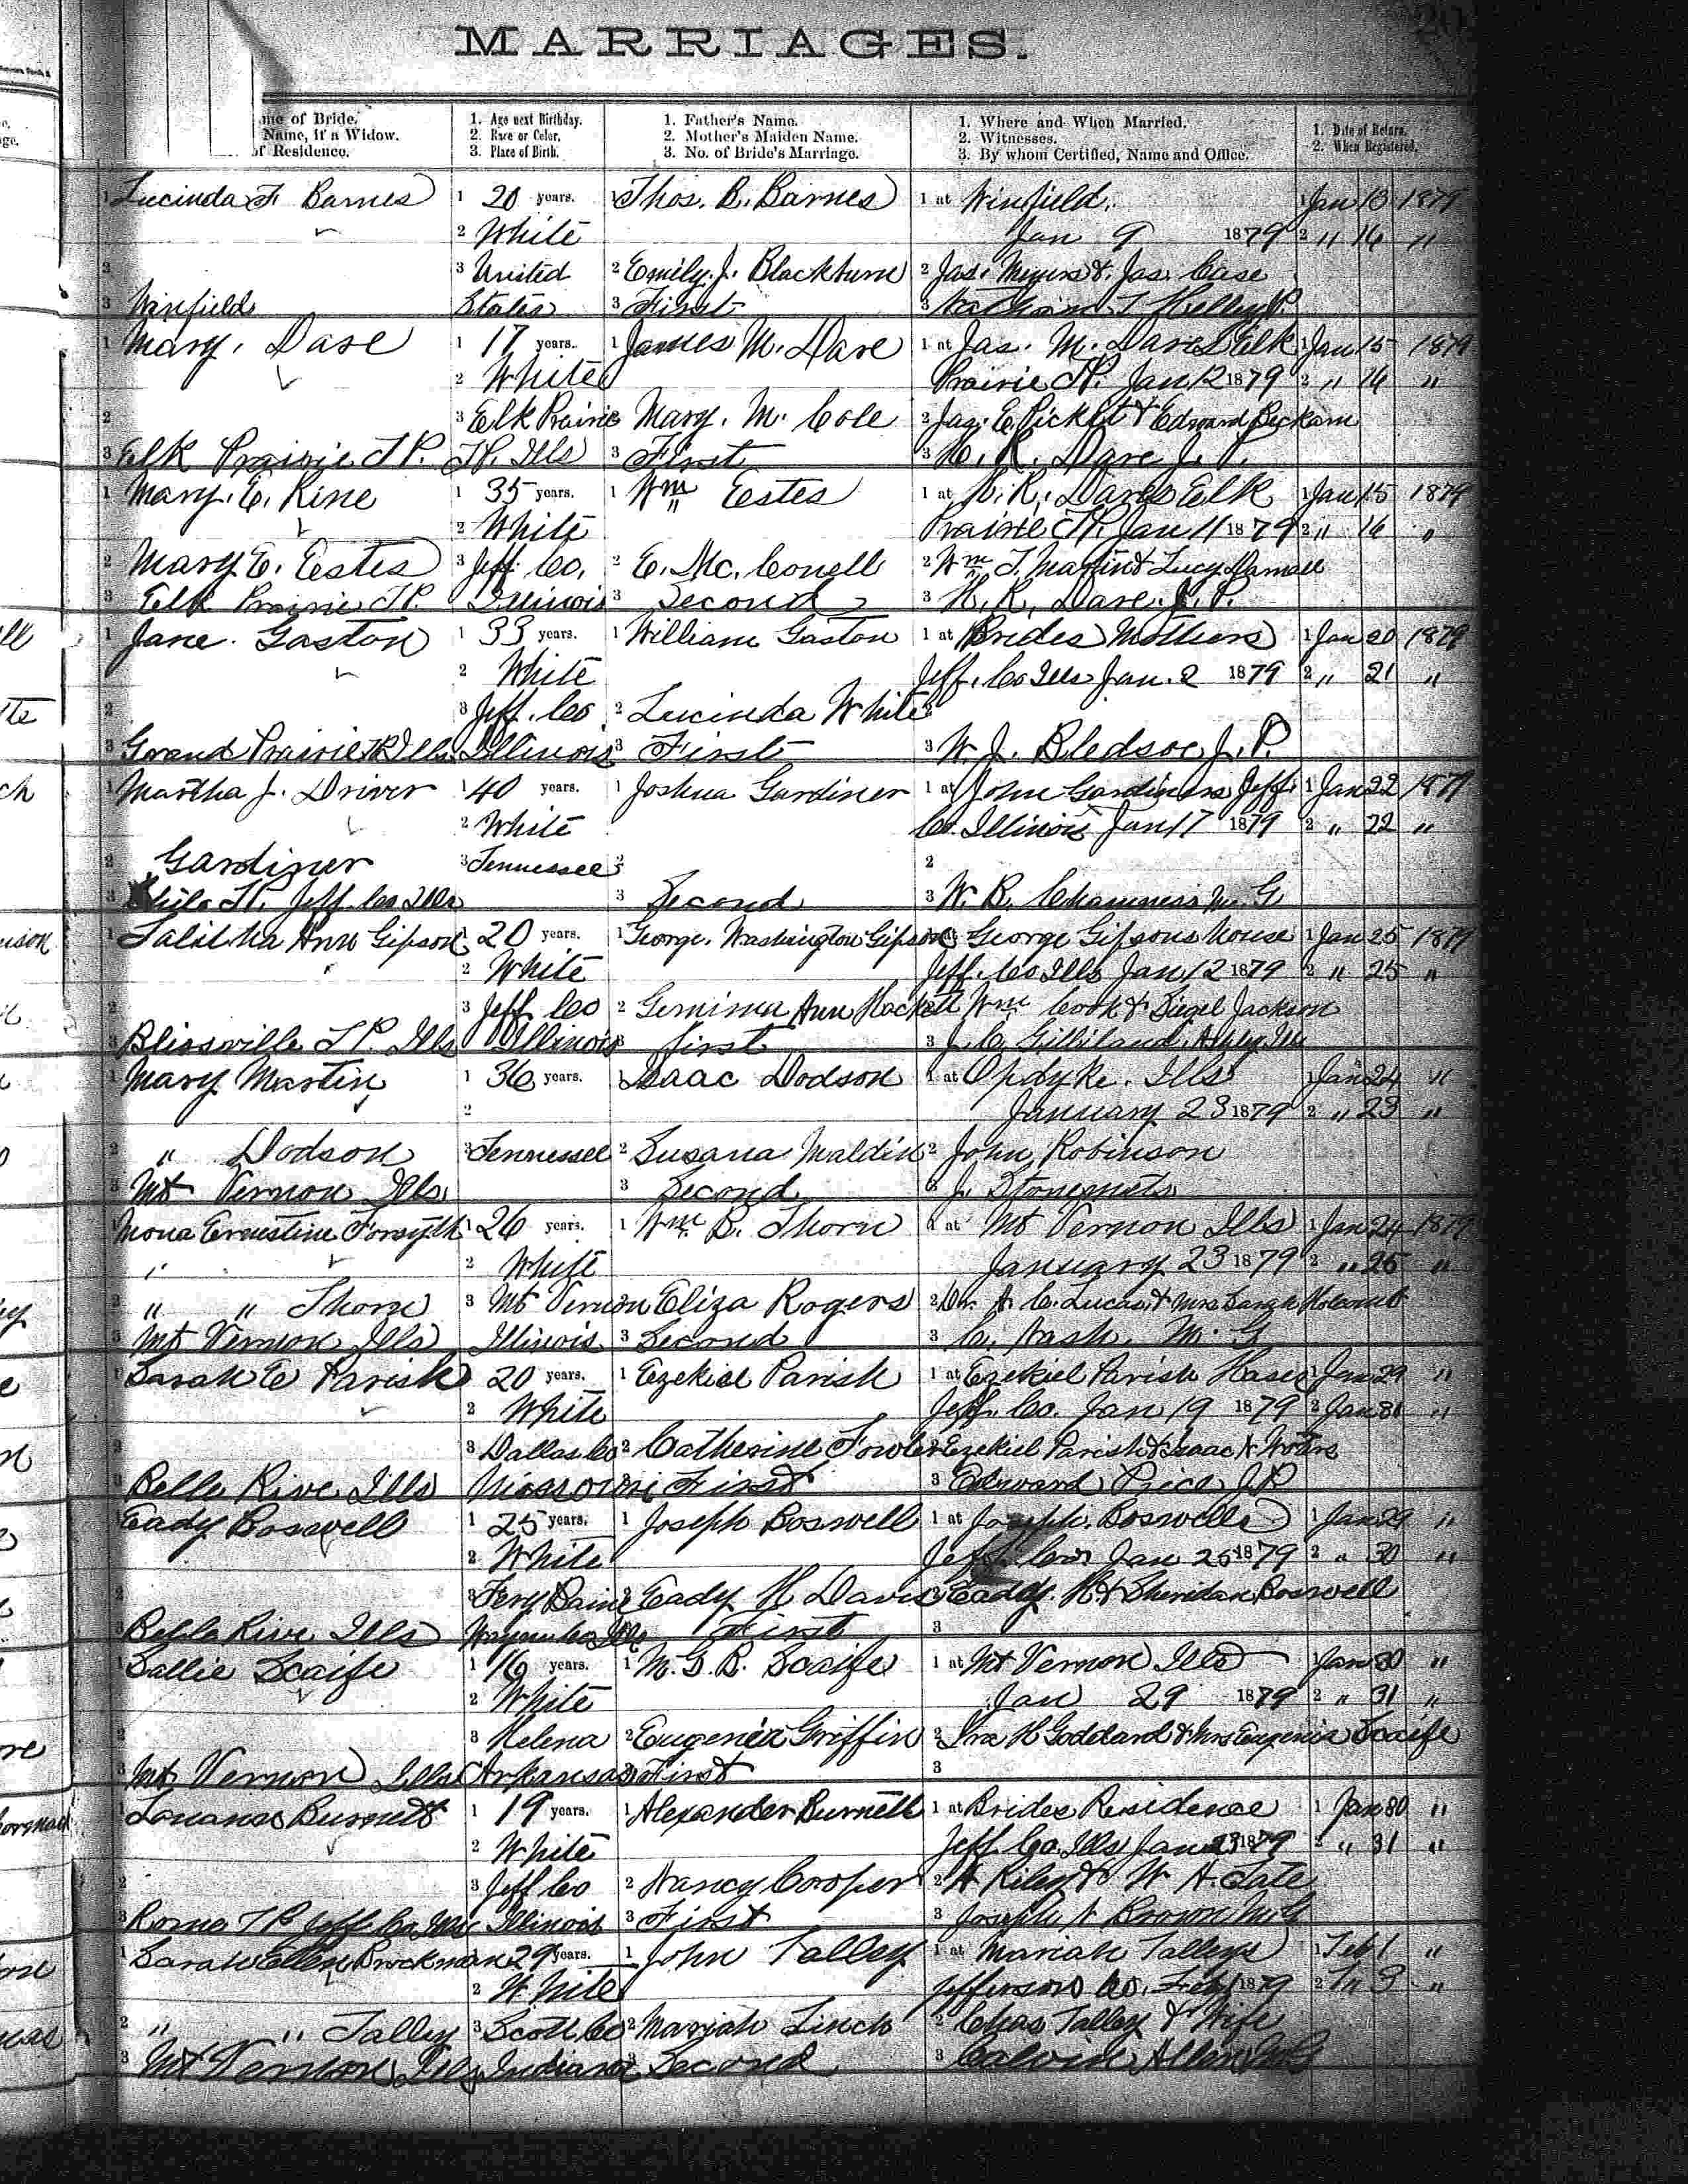 MARRIAGES.
me of Bride.
Name, if a Widow.
of Residence.
1. Age next Birthday.
2. Race or Color.
3. Place of Birth.
1. Father's Name.
2. Mother's Maiden Name.
3. No. of Bride's Marriage.
1. Where and When Married.
2. Witnesses.
3. By whom Certified, Name and Office.
1. Date of Return.
2. When Registered.
1 Lucinda F. Barnes 1 20 years. 1 Thos. B. Barnes 1 at Winfield. 1 Jan 13 1879
2 White Jan 9 1879 2 " 16 "
2 3 United 2 Emily. J. Blackburn 2 Jas. Meyers & Jas. Case
3 Winfield States 3 First 3
1 Mary. Dare 1 17 years. 1 James M. Dare 1 at Jas. M. Dares Elk 1 Jan 15 1879
2 White Prairie TP. Jan 12 1879 2 " 16 "
2 3 Elk Prairie Mary. M. Cole 2 Jas. E. Pickett & Edward Beckam
3 Elk Prairie TP. TP. Ills 3 First 3 H. R. Dare J. P.
1 Mary. E. Rine 1 35 years. 1 Wm Estes 1 at H. R. Dares Elk 1 Jan 15 1879
2 White Prairie TP. Jan 11 1879 2 " 16 "
2 Mary E. Estes 3 Jeff. Co. 2 E. Mc. Conell 2 Wm T. Martin & Lucy Darnall
3 Elk Prairie TP. Illinois 3 Second 3 H. R. Dare. J. P.
1 Jane. Gaston 1 33 years. 1 William Gaston 1 at Brides Mothers 1 Jan 20 1879
2 White Jeff. Co Ills Jan. 2 1879 2 " 21 "
2 3 Jeff. Co 2 Lucinda White 2
3 Grand Prairie TP Ills. Illinois 3 First 3 W. J. Bledsoe J. P.
1 Martha J. Driver 1 40 years. 1 Joshua Gardiner 1 at John Gardiners Jeff. 1 Jan 22 1879
2 White Co. Illinois Jan 17 1879 2 " 22 "
2 Gardiner 3 Tennessee 2 2
3 Shilo TP. Jeff. Co Ills 3 Second 3 W. R. Chamness M. G
1 Talitha Ann Gipson 1 20 years. 1 George. Washington Gipson 1 at George Gipsons House 1 Jan 25 1879
2 White Jeff. Co Ills Jan 12 1879 2 " 25 "
2 3 Jeff Co 2 Gemima Ann Hackett Wm Cook & Siegel Jackson
3 Blissville TP. Ills Illinois 3 first 3 J. C. Gilliland, Ashley Ills
1 Mary Martin 1 36 years. 1 Isaac Dodson 1 at Opdyke. Ills 1 Jan 24 "
2 January 23 1879 2 " 23 "
2 " Dodson 3 Tennessee 2 Susana Maldin 2 John Robinson
3 Mt Vernon Ills 3 Second 3 J.
1 Mona Ernestine Forsyth 1 26 years. 1 Wm. B. Thorn 1 at Mt Vernon Ills 1 Jan 24 1879
2 White January 23 1879 2 " 25 "
2 " " Thorn 3 Mt Vernon Eliza Rogers 2 Dr. A. C. Lucas & Mrs Sarah Holcomb
3 Mt Vernon Ills Illinois 3 Second 3 C. Nash. M. G
1 Sarah E Parish 20 years. 1 Ezekiel Parish 1 at Ezekiel Parish 1 Jan 29 "
2 White Jeff. Co. Jan 19 1879 2 Jan 31 "
2 3 Dallas Co 2 Catherine Fowler 2 Ezekiel Parish & Isaac
3 Belle Rive Ills Missouri First 3 Edward Price J.P
Eady Boswell 1 25 years. 1 Joseph Boswell 1 at Joseph. Boswells 1 Jan 29 "
2 White Jeff. Co Jan 25 1879 2 " 30 "
2 3 2 Eady H Davis 2 Eady. H. & Sheridan Boswell
3 Belle Rive Ills Wayne Co Ills First 3
1 Sallie Scaife 1 16 years. 1 M. G. B. Scaife 1 at Mt Vernon Ills 1 Jan 30 "
2 White Jan 29 1879 2 " 31 "
2 3 Helena 2 Eugenia Griffin 2 Ira H Goddard & Mrs Eugenia Scaife
3 Mt Vernon Ills Arkansas 3 First 3
1 Burnett 1 19 years. 1 Alexander Burnett 1 at Brides Residence 1 Jan 30 "
2 White Jeff Co. Ills Jan 23 1879 2 " 31 "
2 3 Jeff Co 2 Nancy Cooper 2 A Riley & W A Tate
3 Rome TP Jeff Co. Ills Illinois 3 First 3 Joseph A Brown M.G
1 Sarah Ellen Brockman 29 years. 1 John Talley 1 at Mariah Talleys 1 Feb 1 "
2 White Jefferson Co. Feb 1 1879 2 3 "
2 " " Talley 3 Scott Co 2 Mariah Linch 2 Chas Talley & Wife
3 Mt Vernon Ills Indiana 3 Second 3 Calvin Allen M.G